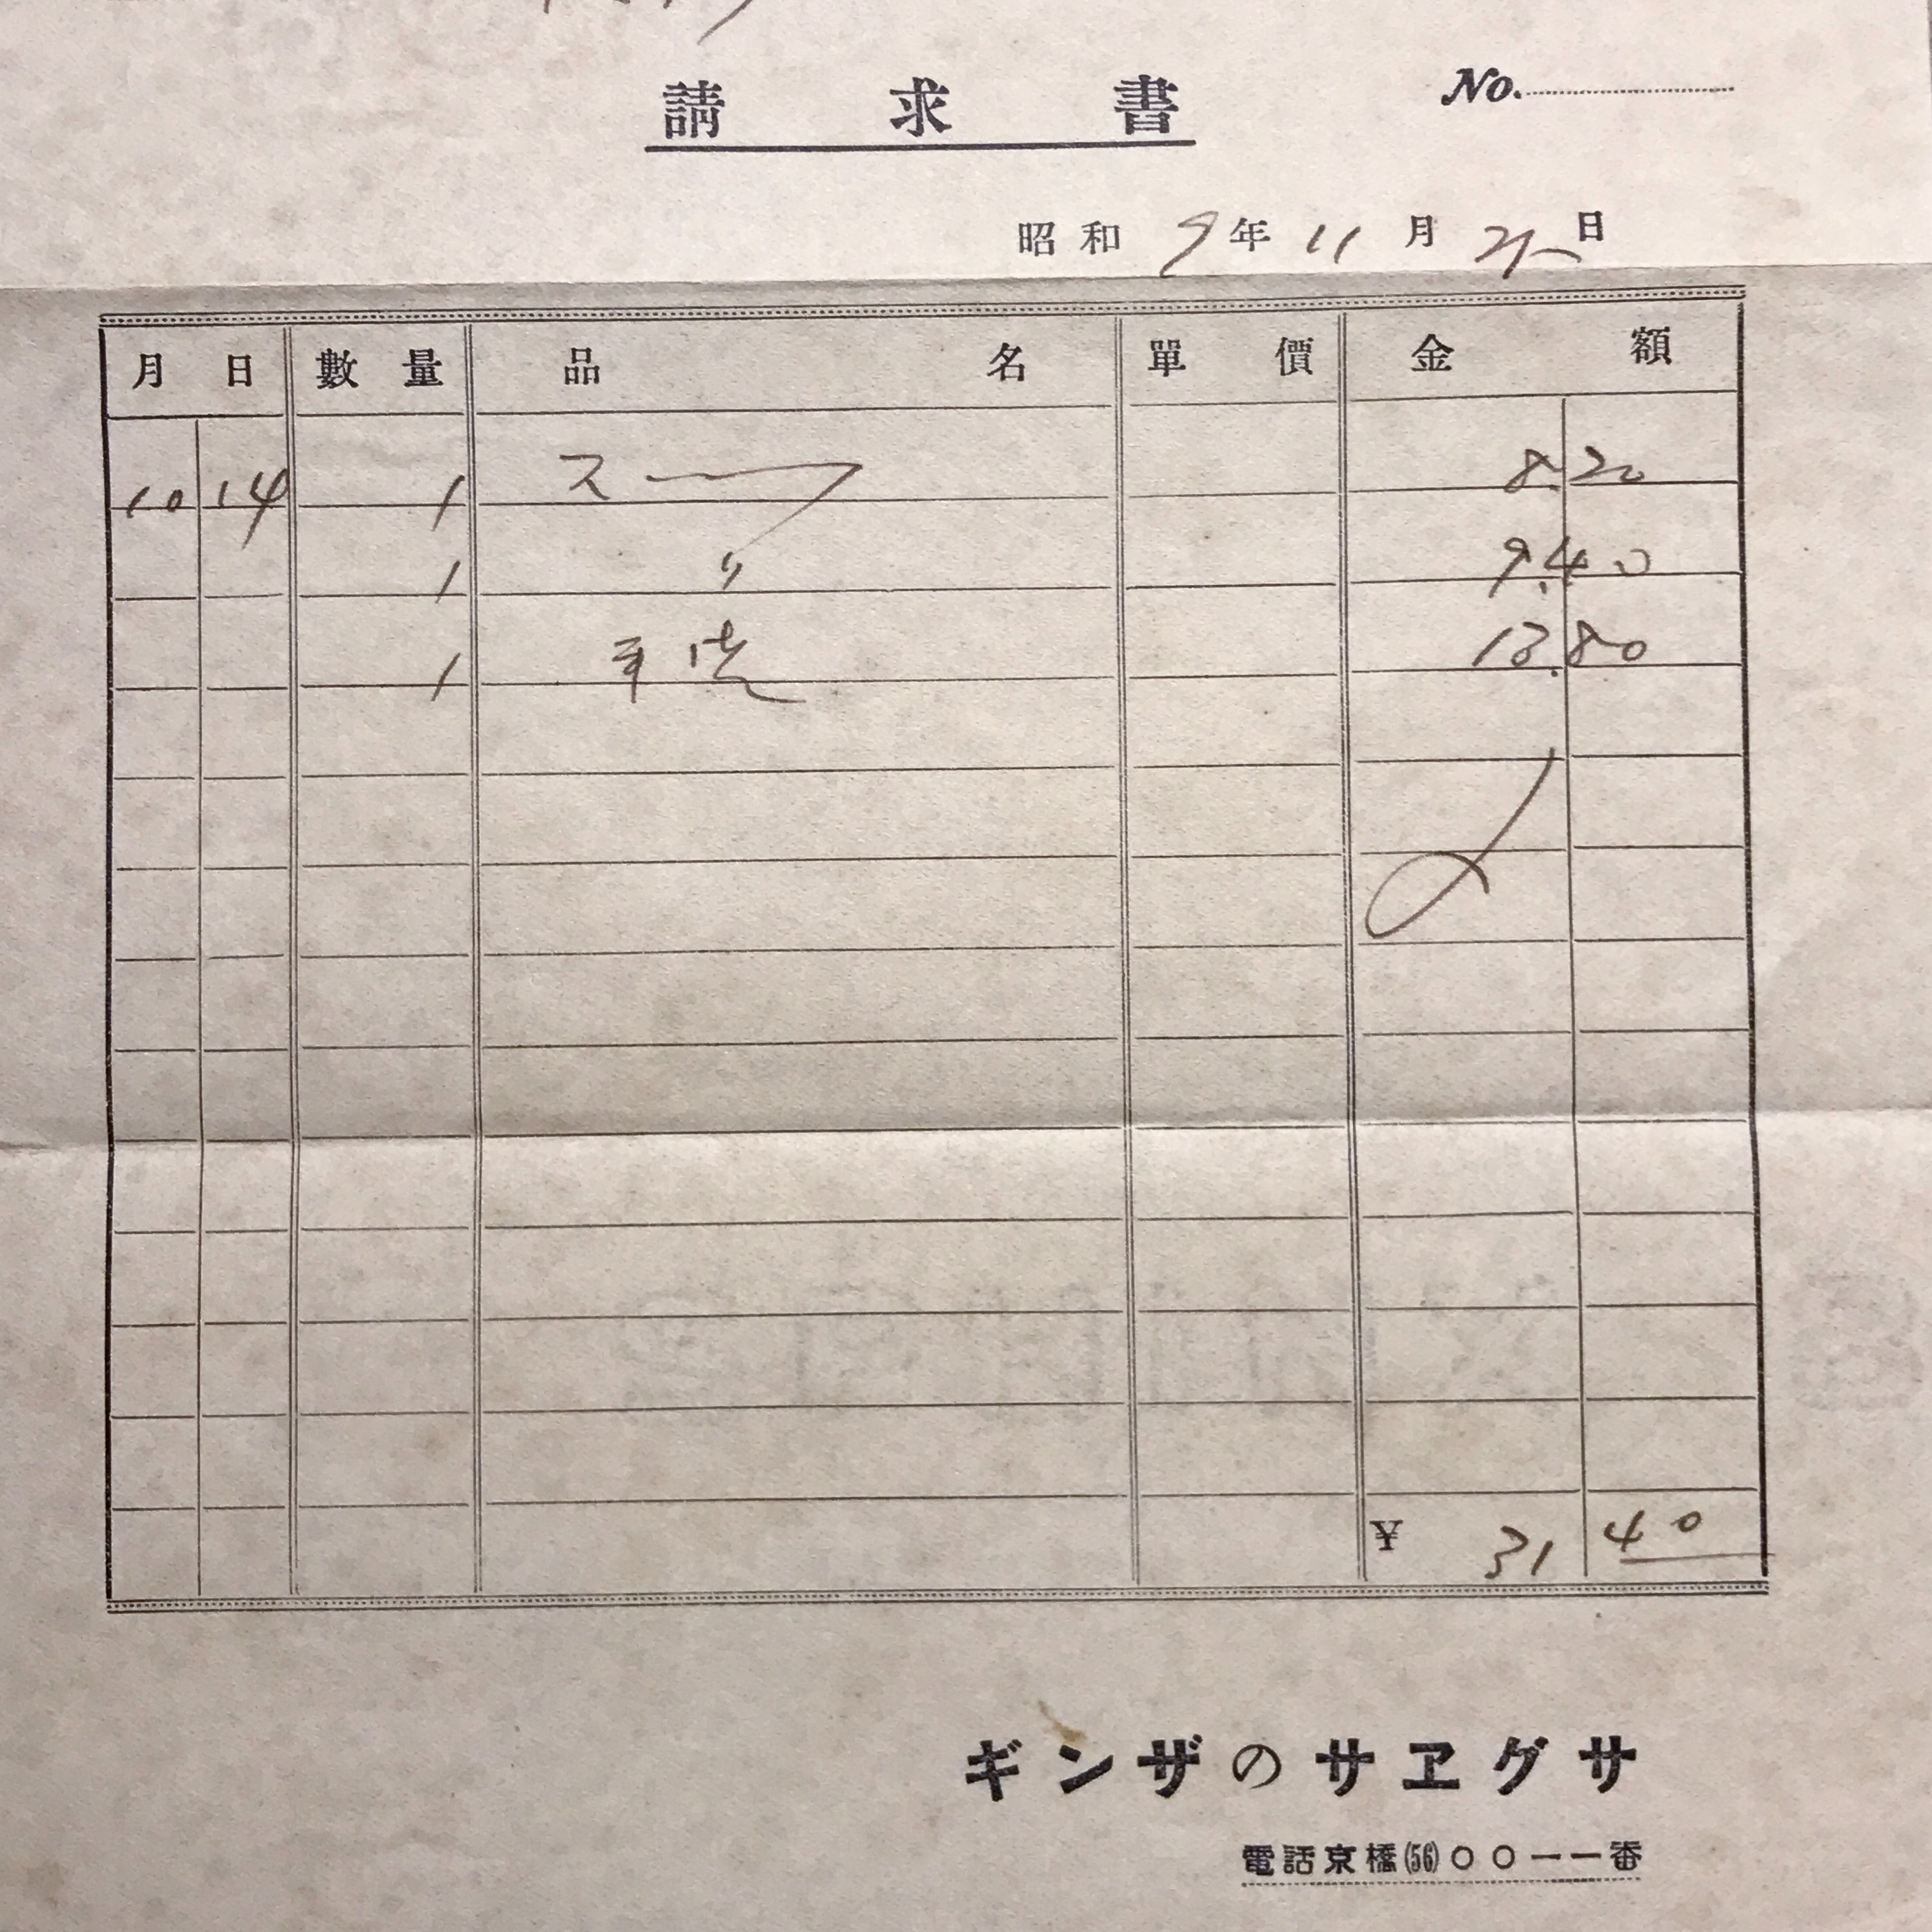 請求書
No.
昭和 9年 11月 日
月 日 數量 品名 單價 金額
10 14 1 8.20
1 〃 9.40
1 13.80
¥ 31 40
ギンザのサヱグサ
電話京橋(56)〇〇一一番